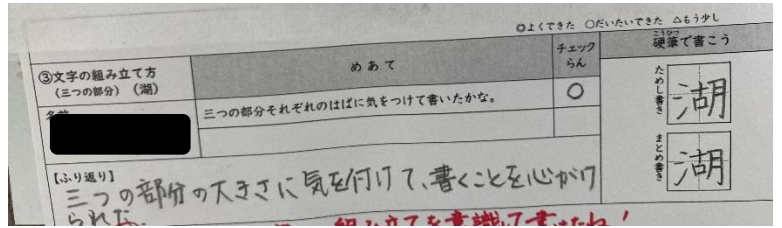 ◎よくできた ○だいたいできた △もう少し
③文字の組み立て方
(三つの部分) (湖)
めあて
チェック
らん
硬筆で書こう
こうひつ
名前
三つの部分それぞれのはばに気をつけて書いたかな。
○
ためし書き
湖
まとめ書き
湖
【ふり返り】
三つの部分の大きさに気を付けて、書くことを心がけ
られた。
組み立てを意識して書けたね!